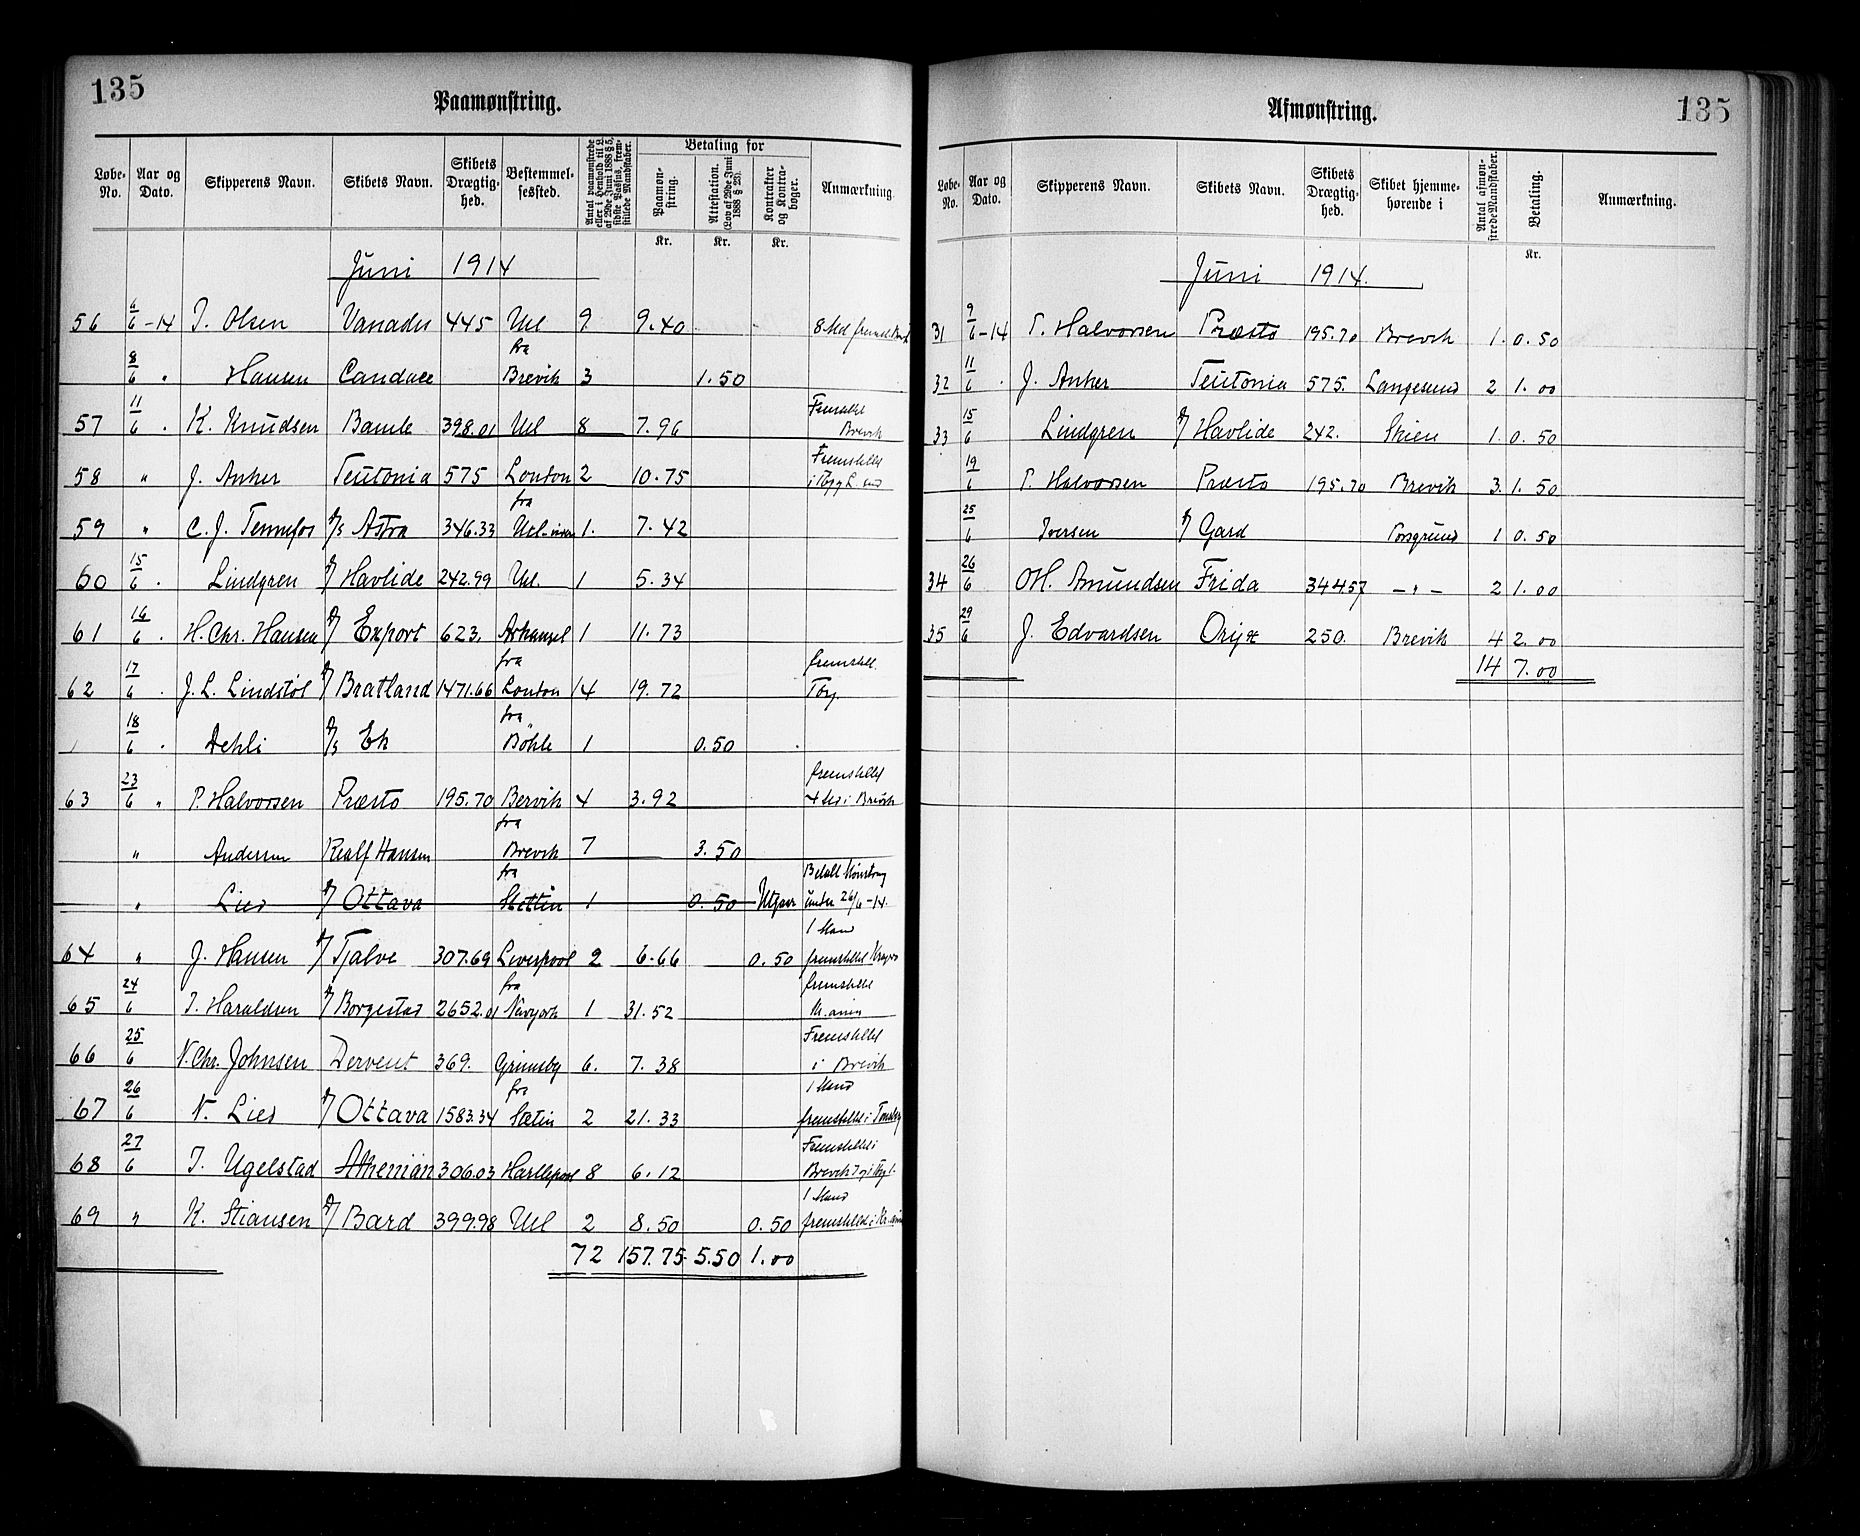 135
Paamønstring.
Løbe-No. | Aar og Dato. | Skipperens Navn. | Skibets Navn. | Skibets Drægtighed. | Bestemmelsessted. | Antal paamønstrede eller i Henhold til L. af 29de Juni 1888 § 5, sidste Passus, fremstillede Mandskaber. | Betaling for | Paamønstring. Kr. | Attestation. (Lov af 29de Juni 1888 § 23). Kr. | Kontrakter og Kontrabøger. Kr. | Anmærkning.
Juni 1914
56 6/6 -14 J. Olsen Vanadis 445 Utl 9 9.40 8 Md fremst.
8/6 " Hansen Candace fra Brevik 3 1.50
57 11/6 . K. Knudsen Bamle 398.01 Utl 8 7.96 Fremstillet Brevik
58 " J. Anker Teutonia 575 London 2 10.75 Fremstillet
59 " C. J. Tennefos D/S Astra 346.33 fra Utl 1. 7.42
60 15/6 . Lindgren D/ Havlide 242.99 Utl. 1 5.34
61 16/6 . H. Chr. Hansen D/ Export 623. Arkangel 1 11.73
62 17/6 . J. L. Lindstøl D/ Bratland 1471.66 fra London 14 19.72 fremstill. Tbg.
18/6 . Dehli D/S Ek fra Böhle 1 0.50
63 23/6 " P. Halvorsen Præstø 195.70 Bervik 4 3.92 fremstillet 4 i Brevik
" Andersen Realf Hansen fra Brevik 7 3.50
" Lied D/ Ottava fra Stettin 1 0.50 Utgaar Betalt Mönstring under 26/6 -14.
64 " J. Hansen D/ Tjalve 307.69 Liverpool 2 6.66 0.50 1 Mand fremstillet
65 24/6 J. Haraldsen D/ Borgestad 2652.01 fra Newyork 1 31.52 fremstillet Kr.ania
66 25/6 N. Chr. Johnsen Dervent 369. Grimsby 6. 7.38 Fremstillet i Brevik
67 26/6 N. Lied D/ Ottava 1583.34 fra Stetin 2 21.33 1 Mand fremstillet i Tønsberg
68 27/6 J. Ugelstad Athenian 306.03 Hartlepool 8 6.12 Fremstillet i Brevik
69 " K. Stiansen D/ Bard 399.98 Utl 2 8.50 0.50 1 Mand fremstilled i Kr.ania
72 157.75 5.50 1.00
135
Afmønstring.
Løbe-No. | Aar og Dato. | Skipperens Navn. | Skibets Navn. | Skibets Drægtighed. | Skibet hjemmehørende i | Antal afmønstrede Mandskaber. | Betaling. Kr. | Anmærkning.
Juni 1914.
31 9/6 -14 P. Halvorsen Præstø 195.70 Brevik 1. 0.50
32 11/6 . J. Anker Teutonia 575. Langesund 2 1.00
33 15/6 Lindgren D/ Havlide 242. Skien 1. 0.50
19/6 P. Halvorsen Præstø 195.70 Brevik 3. 1.50
25/6 Iversen D/ Gard Porsgrund 1 0.50
34 26/6 M. Amundsen Frida 344.57 — " — 2 1.00
35 29/6 J. Edvardsen Oryx 250. Brevik 4 2.00
14 7.00